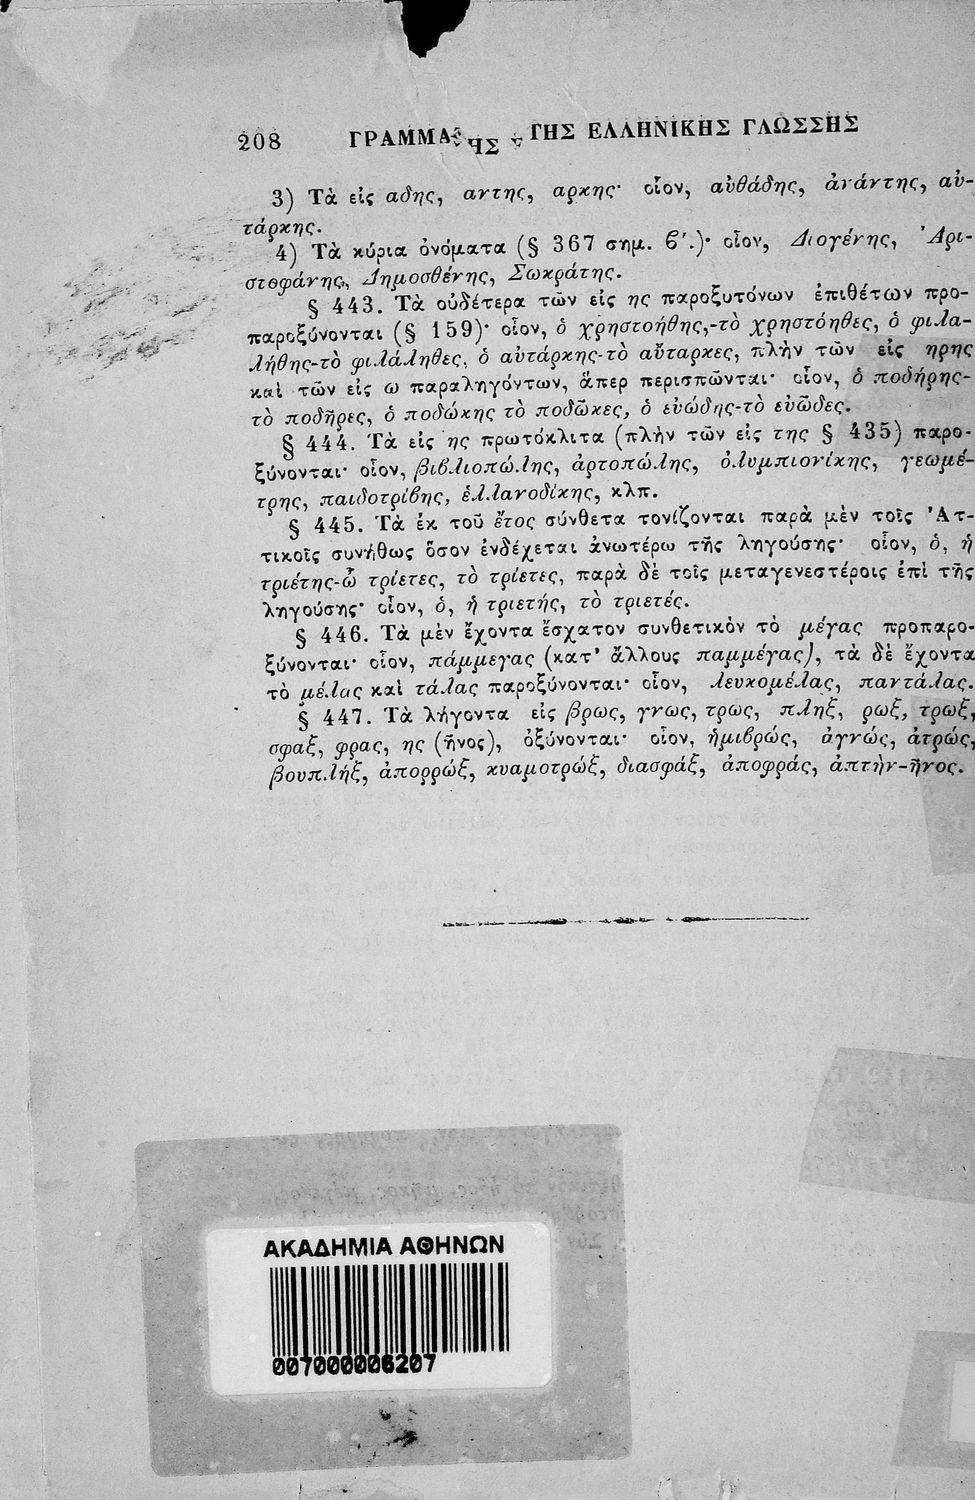 208 ΓΡΑΜΜΑ ΗΣ ΤΗΣ ΕΛΛΗΝΙΚΗΣ ΓΛΩΣΣΗΣ
3) Τὰ εἰς αδης, αντης, αρκης· οἷον, αὐθάδης, ἀνάντης, αὐ-
τάρκης.
4) Τὰ κύρια ὀνόματα (§ 367 σημ. ϐʹ.)· οἷον, Διογένης, Ἀρι-
στοφάνης, Δημοσθένης, Σωκράτης.
§ 443. Τὰ οὐδέτερα τῶν εἰς ης παροξυτόνων ἐπιθέτων προ-
παροξύνονται (§ 159)· οἷον, ὁ χρηστοήθης,-τὸ χρηστόηθες, ὁ φιλα-
λήθης-τὸ φιλάληθες, ὁ αὐτάρκης-τὸ αὔταρκες, πλὴν τῶν εἰς ηρης
καὶ τῶν εἰς ω παραληγόντων, ἅπερ περισπῶνται· οἷον, ὁ ποδήρης-
τὸ ποδῆρες, ὁ ποδώκης τὸ ποδῶκες, ὁ εὐώδης-τὸ εὐῶδες.
§ 444. Τὰ εἰς ης πρωτόκλιτα (πλὴν τῶν εἰς της § 435) παρο-
ξύνονται· οἷον, βιβλιοπώλης, ἀρτοπώλης, ὀλυμπιονίκης, γεωμέ-
τρης, παιδοτρίβης, ἑλλανοδίκης, κλπ.
§ 445. Τὰ ἐκ τοῦ ἔτος σύνθετα τονίζονται παρὰ μὲν τοῖς Ἀτ-
τικοῖς συνήθως ὅσον ἐνδέχεται ἀνωτέρω τῆς ληγούσης· οἷον, ὁ, ἡ
τριέτης-ὦ τρίετες, τὸ τρίετες, παρὰ δὲ τοῖς μεταγενεστέροις ἐπὶ τῆς
ληγούσης· οἷον, ὁ, ἡ τριετής, τὸ τριετές.
§ 446. Τὰ μὲν ἔχοντα ἔσχατον συνθετικὸν τὸ μέγας προπαρο-
ξύνονται· οἷον, πάμμεγας (κατ' ἄλλους παμμέγας), τὰ δὲ ἔχοντα
τὸ μέλας καὶ τάλας παροξύνονται· οἷον, λευκομέλας, παντάλας.
§ 447. Τὰ λήγοντα εἰς βρως, γνως, τρως, πληξ, ρωξ, τρωξ,
σφαξ, φρας, ης (ῆνος), ὀξύνονται· οἷον, ἡμιβρώς, ἀγνώς, ἀτρώς,
βουπλήξ, ἀπορρώξ, κυαμοτρώξ, διασφάξ, ἀποφράς, ἀπτὴν-ῆνος.
ΑΚΑΔΗΜΙΑ ΑΘΗΝΩΝ
007000006207